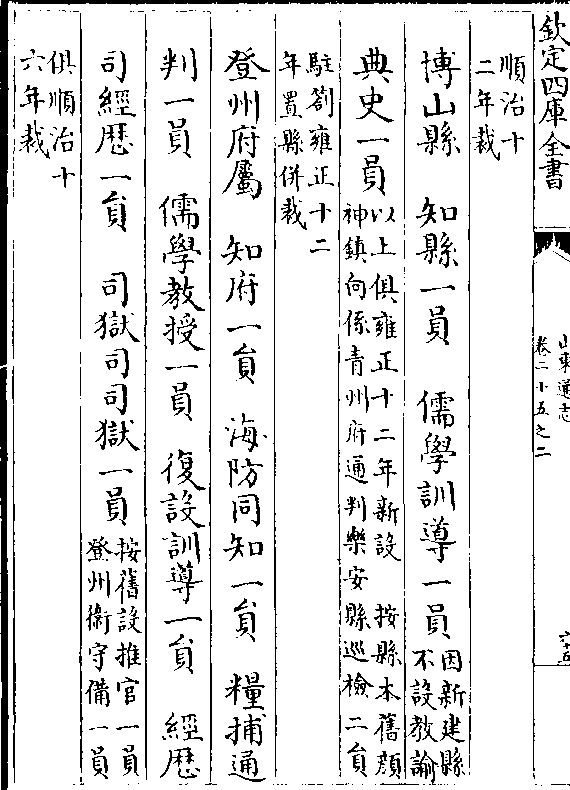 欽定四庫全書
山東通志
卷二十五之二
六十五
順治十
二年裁
博山縣　知縣一員　儒學訓導一員
因新建縣
不設教諭
典史一員
以上俱雍正十二年新設　按縣本舊顔
神鎮向係青州府通判樂安縣巡檢二員
駐劄雍正十二
年置縣併裁
登州府屬　知府一員　海防同知一員　糧捕通
判一員　儒學教授一員　復設訓導一員　經歷
司經歷一員　司獄司司獄一員
按舊設推官一員
登州衛守備一員
俱順治十
六年裁